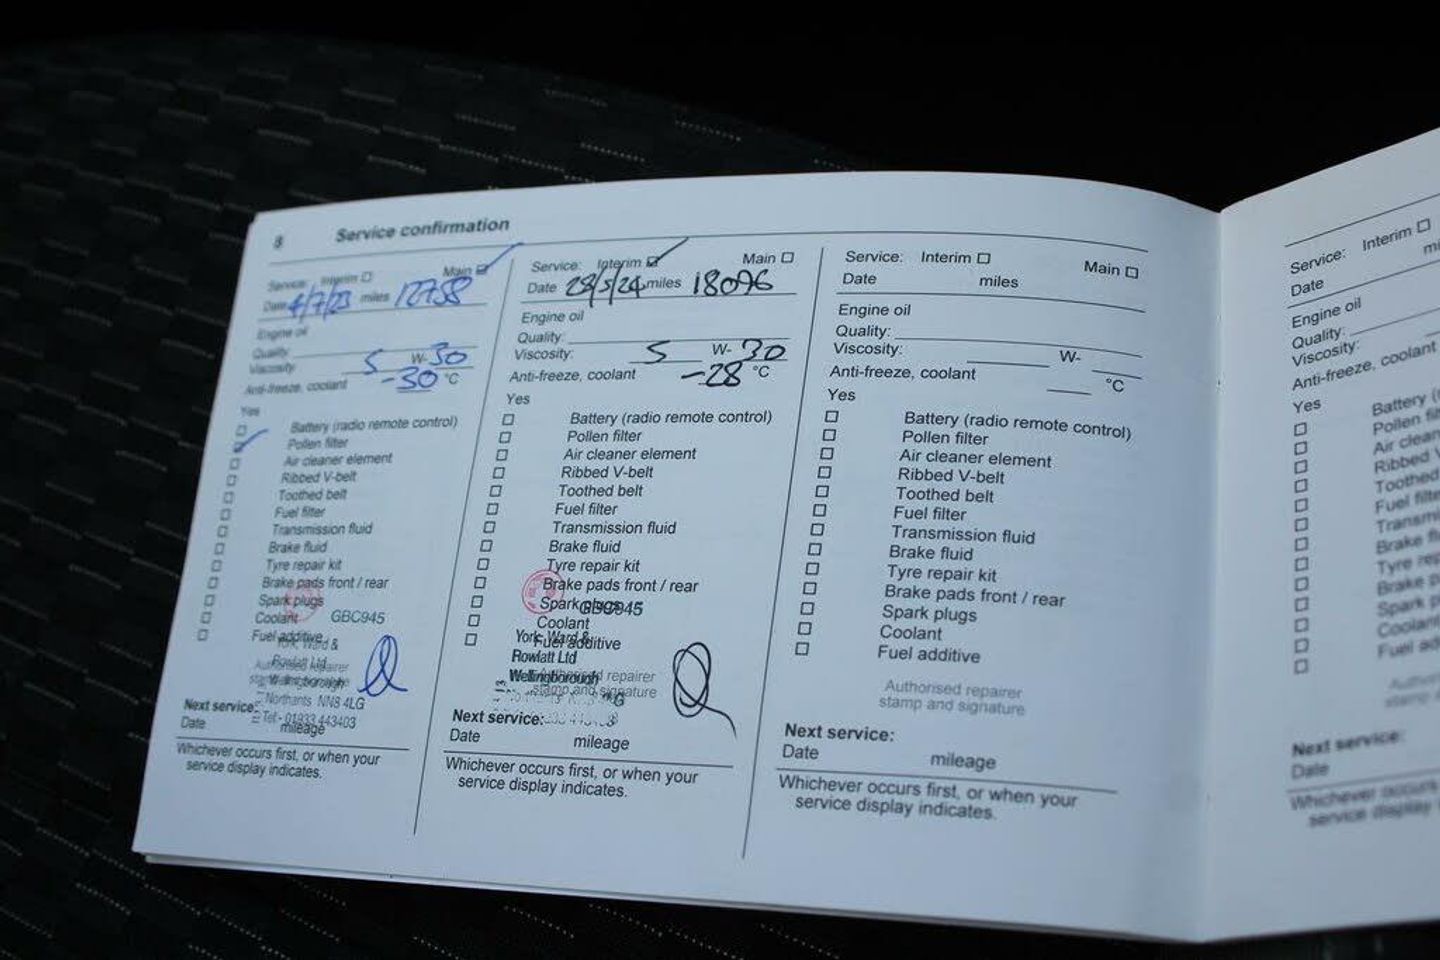 8 Service confirmation
Service: Interim Main
Date 4/7/23 miles 12758
Engine oil
Quality:
Viscosity: 5 W- 30
Anti-freeze, coolant -30 °C
Yes
Battery (radio remote control)
Pollen filter
Air cleaner element
Ribbed V-belt
Toothed belt
Fuel filter
Transmission fluid
Brake fluid
Tyre repair kit
Brake pads front / rear
Spark plugs
Coolant GBC945
Fuel additive
York, Ward &
Rowlatt Ltd
Authorised repairer
Wellingborough
stamp and signature
Northants NN8 4LG
Next service:
Tel - 01933 443403
Date mileage
Whichever occurs first, or when your
service display indicates.
Service: Interim Main
Date 28/5/24 miles 18096
Engine oil
Quality:
Viscosity: 5 W- 30
Anti-freeze, coolant -28 °C
Yes
Battery (radio remote control)
Pollen filter
Air cleaner element
Ribbed V-belt
Toothed belt
Fuel filter
Transmission fluid
Brake fluid
Tyre repair kit
Brake pads front / rear
Spark plugs GBC945
Coolant
York, Ward &
Fuel additive
Rowlatt Ltd
Wellingborough
Authorised repairer
stamp and signature
Next service:
Date mileage
Whichever occurs first, or when your
service display indicates.
Service: Interim Main
Date miles
Engine oil
Quality:
Viscosity: W-
Anti-freeze, coolant °C
Yes
Battery (radio remote control)
Pollen filter
Air cleaner element
Ribbed V-belt
Toothed belt
Fuel filter
Transmission fluid
Brake fluid
Tyre repair kit
Brake pads front / rear
Spark plugs
Coolant
Fuel additive
Authorised repairer
stamp and signature
Next service:
Date mileage
Whichever occurs first, or when your
service display indicates.
Service: Interim
Date
Engine oil
Quality:
Viscosity:
Anti-freeze, coolant
Yes
Battery
Pollen
Air
Ribbed
Toothed
Fuel
Brake
Tyre
Brake
Spark
Coolant
Fuel
Next service:
Date
Whichever occurs
service display